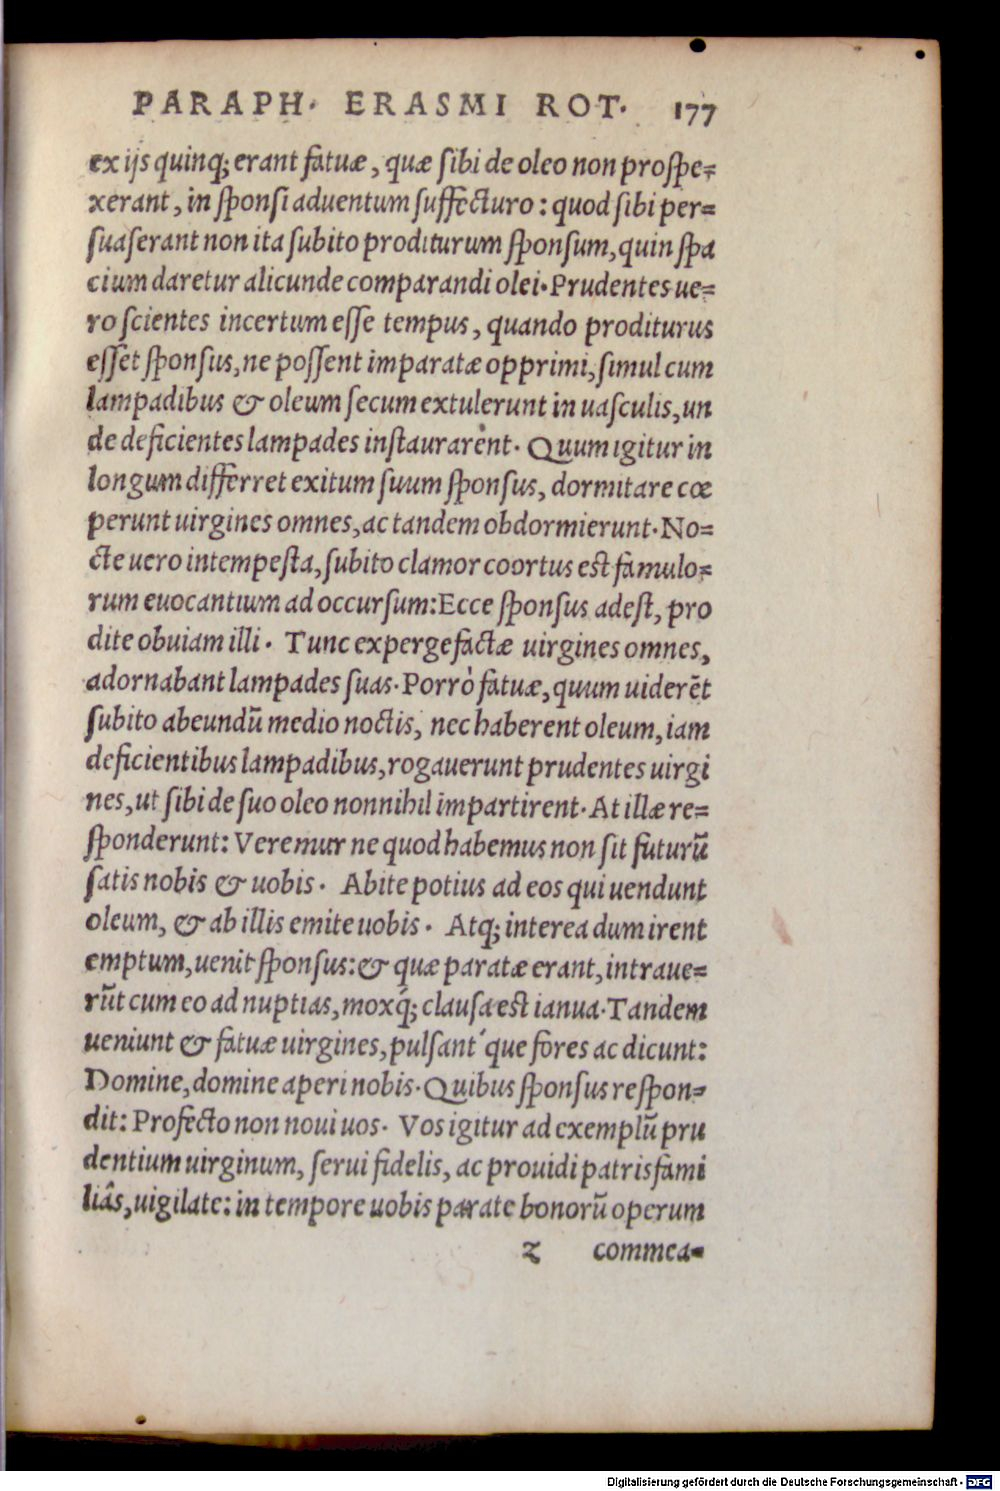 PARAPH. ERASMI ROT. 177
ex ijs quinq; erant fatuæ, quæ sibi de oleo non prospe=
xerant, in sponsi aduentum suffecturo: quod sibi per=
suaserant non ita subito proditurum sponsum, quin spa
cium daretur alicunde comparandi olei. Prudentes ue=
ro scientes incertum esse tempus, quando proditurus
esset sponsus, ne possent imparatæ opprimi, simul cum
lampadibus & oleum secum extulerunt in uasculis, un
de deficientes lampades instaurarent. Quum igitur in
longum differret exitum suum sponsus, dormitare cœ
perunt uirgines omnes, ac tandem obdormierunt. No=
cte uero intempesta, subito clamor coortus est famulo=
rum euocantium ad occursum: Ecce sponsus adest, pro
dite obuiam illi. Tunc expergefactæ uirgines omnes,
adornabant lampades suas. Porrò fatuæ, quum uiderēt
subito abeundū medio noctis, nec haberent oleum, iam
deficientibus lampadibus, rogauerunt prudentes uirgi
nes, ut sibi de suo oleo nonnihil impartirent. At illæ re=
sponderunt: Veremur ne quod habemus non sit futurū
satis nobis & uobis. Abite potius ad eos qui uendunt
oleum, & ab illis emite uobis. Atq; interea dum irent
emptum, uenit sponsus: & quæ paratæ erant, intraue=
rūt cum eo ad nuptias, moxq́; clausa est ianua. Tandem
ueniunt & fatuæ uirgines, pulsant´que fores ac dicunt:
Domine, domine aperi nobis. Quibus sponsus respon=
dit: Profecto non noui uos. Vos igitur ad exemplū pru
dentium uirginum, serui fidelis, ac prouidi patrisfami
liâs, uigilate: in tempore uobis parate bonorū operum
z commea=
Digitalisierung gefördert durch die Deutsche Forschungsgemeinschaft - DFG